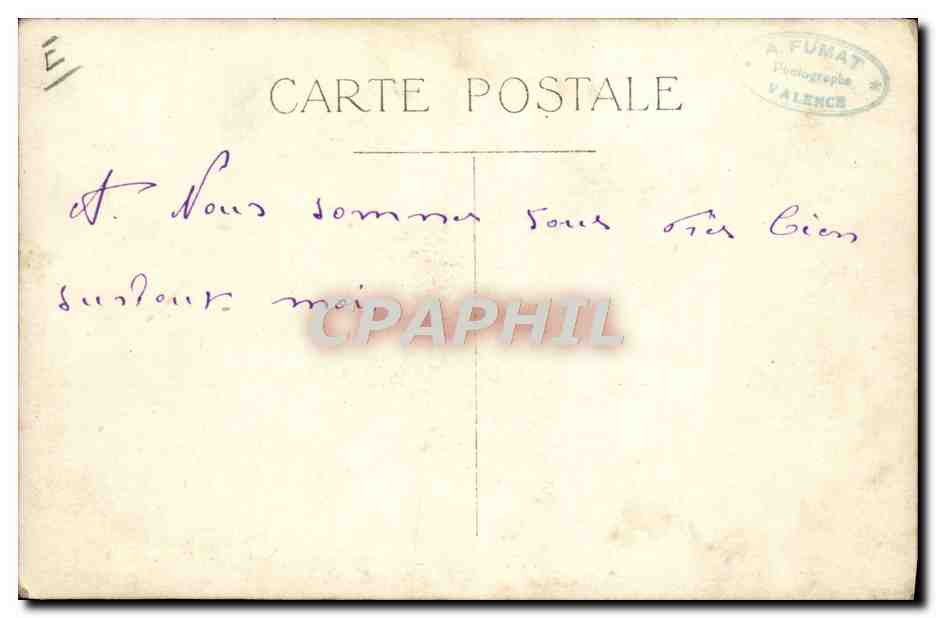 E
CARTE POSTALE
A. FUMAT
Photographe
VALENCE
A. Nous sommes tous très bien
surtout moi
CPAPHIL